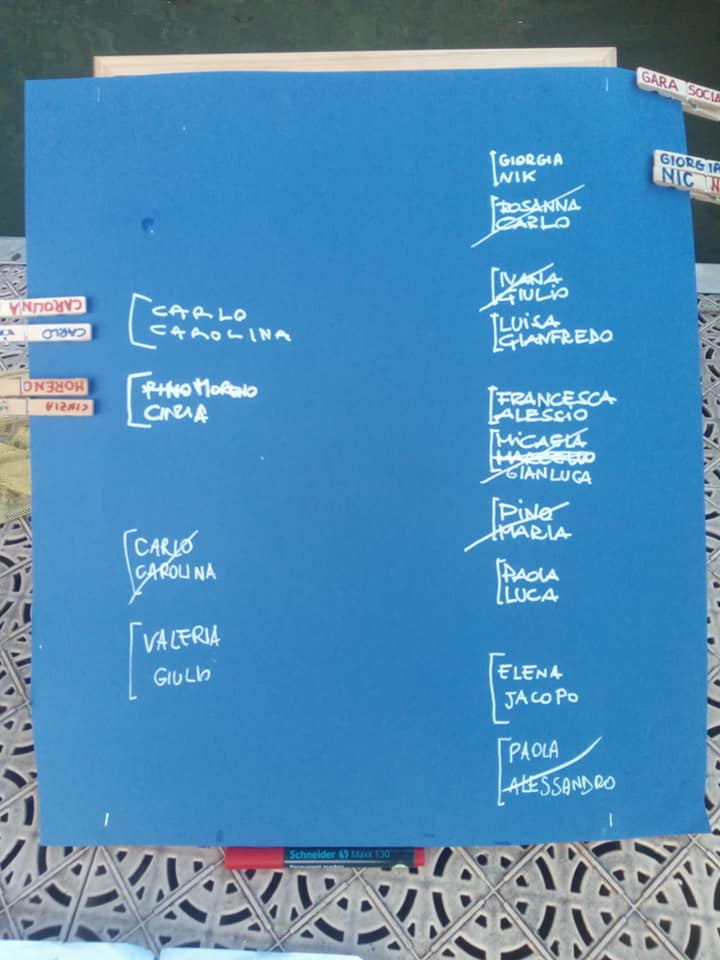 GARA SOCIA
GIORGIA
NIC N
GIORGIA
NIK
ROSANNA
CARLO
IVANA
GIULIO
LUISA
GIANFREDO
FRANCESCA
ALESSIO
MICAELA
MARCELLO
GIANLUCA
PINO
MARIA
PAOLA
LUCA
ELENA
JACOPO
PAOLA
ALESSANDRO
CAROLINA
CARLO
MORENO
CINZIA
CARLO
CAROLINA
PINO MORENO
CINZIA
CARLO
CAROLINA
VALERIA
GIULIO
Schneider Maxx 130
Permanent marker